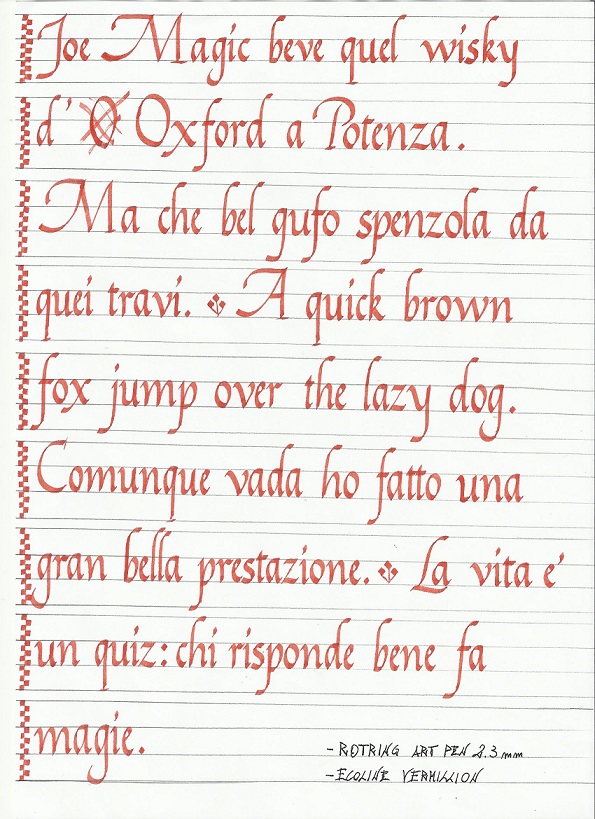 Joe Magic beve quel wisky
d' O Oxford a Potenza.
Ma che bel gufo spenzola da
quei travi. A quick brown
fox jump over the lazy dog.
Comunque vada ho fatto una
gran bella prestazione. La vita e'
un quiz: chi risponde bene fa
magie.
- ROTRING ART PEN 2.3 mm
- ECOLINE VERMILLION